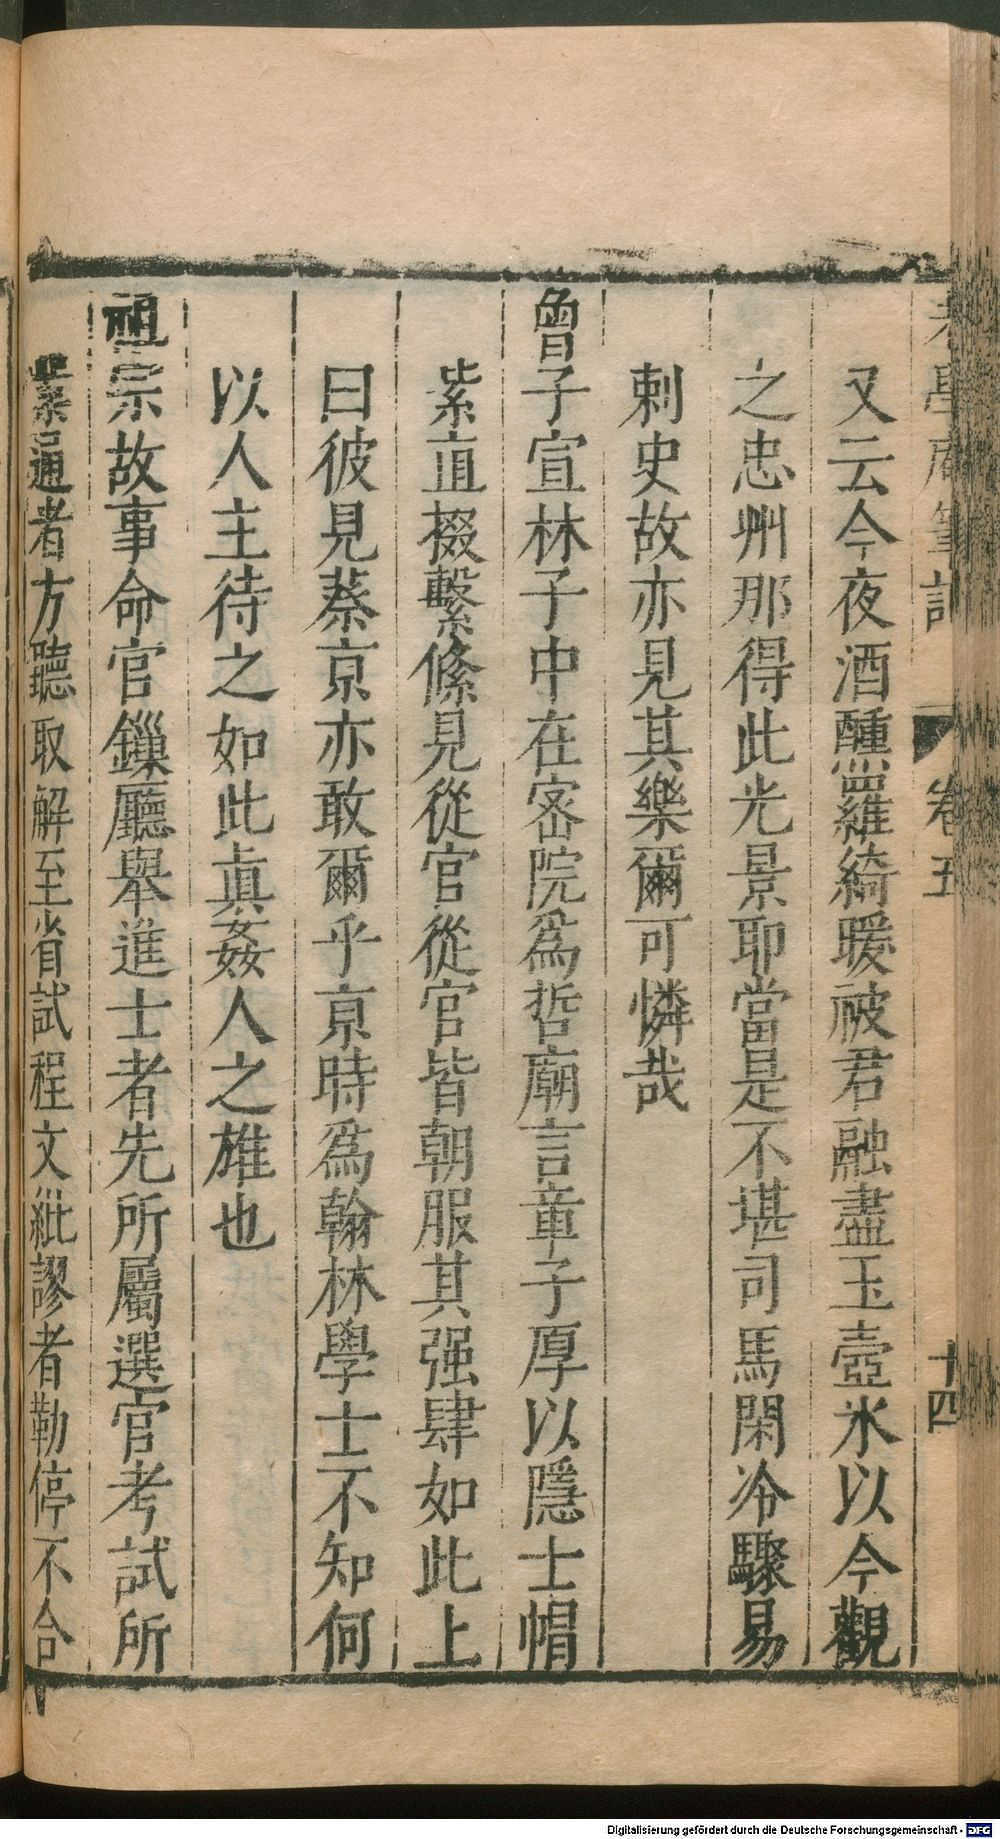 老學庵筆記 卷五 十四
又云今夜酒醺羅綺暖被君融盡玉壺氷以今觀
之忠州那得此光景耶當是不堪司馬閑冷驟易
剌史故亦見其樂爾可憐哉
曾子宣林子中在宻院爲哲廟言章子厚以隱士帽
紫直掇繫絛見從官從官皆朝服其强肆如此上
曰彼見蔡京亦敢爾乎京時爲翰林學士不知何
以人主待之如此眞姦人之雄也
祖宗故事命官鏁廳舉進士者先所屬選官考試所
業通者方聽取解至省試程文紕謬者勒停不合
Digitalisierung gefördert durch die Deutsche Forschungsgemeinschaft - DFG